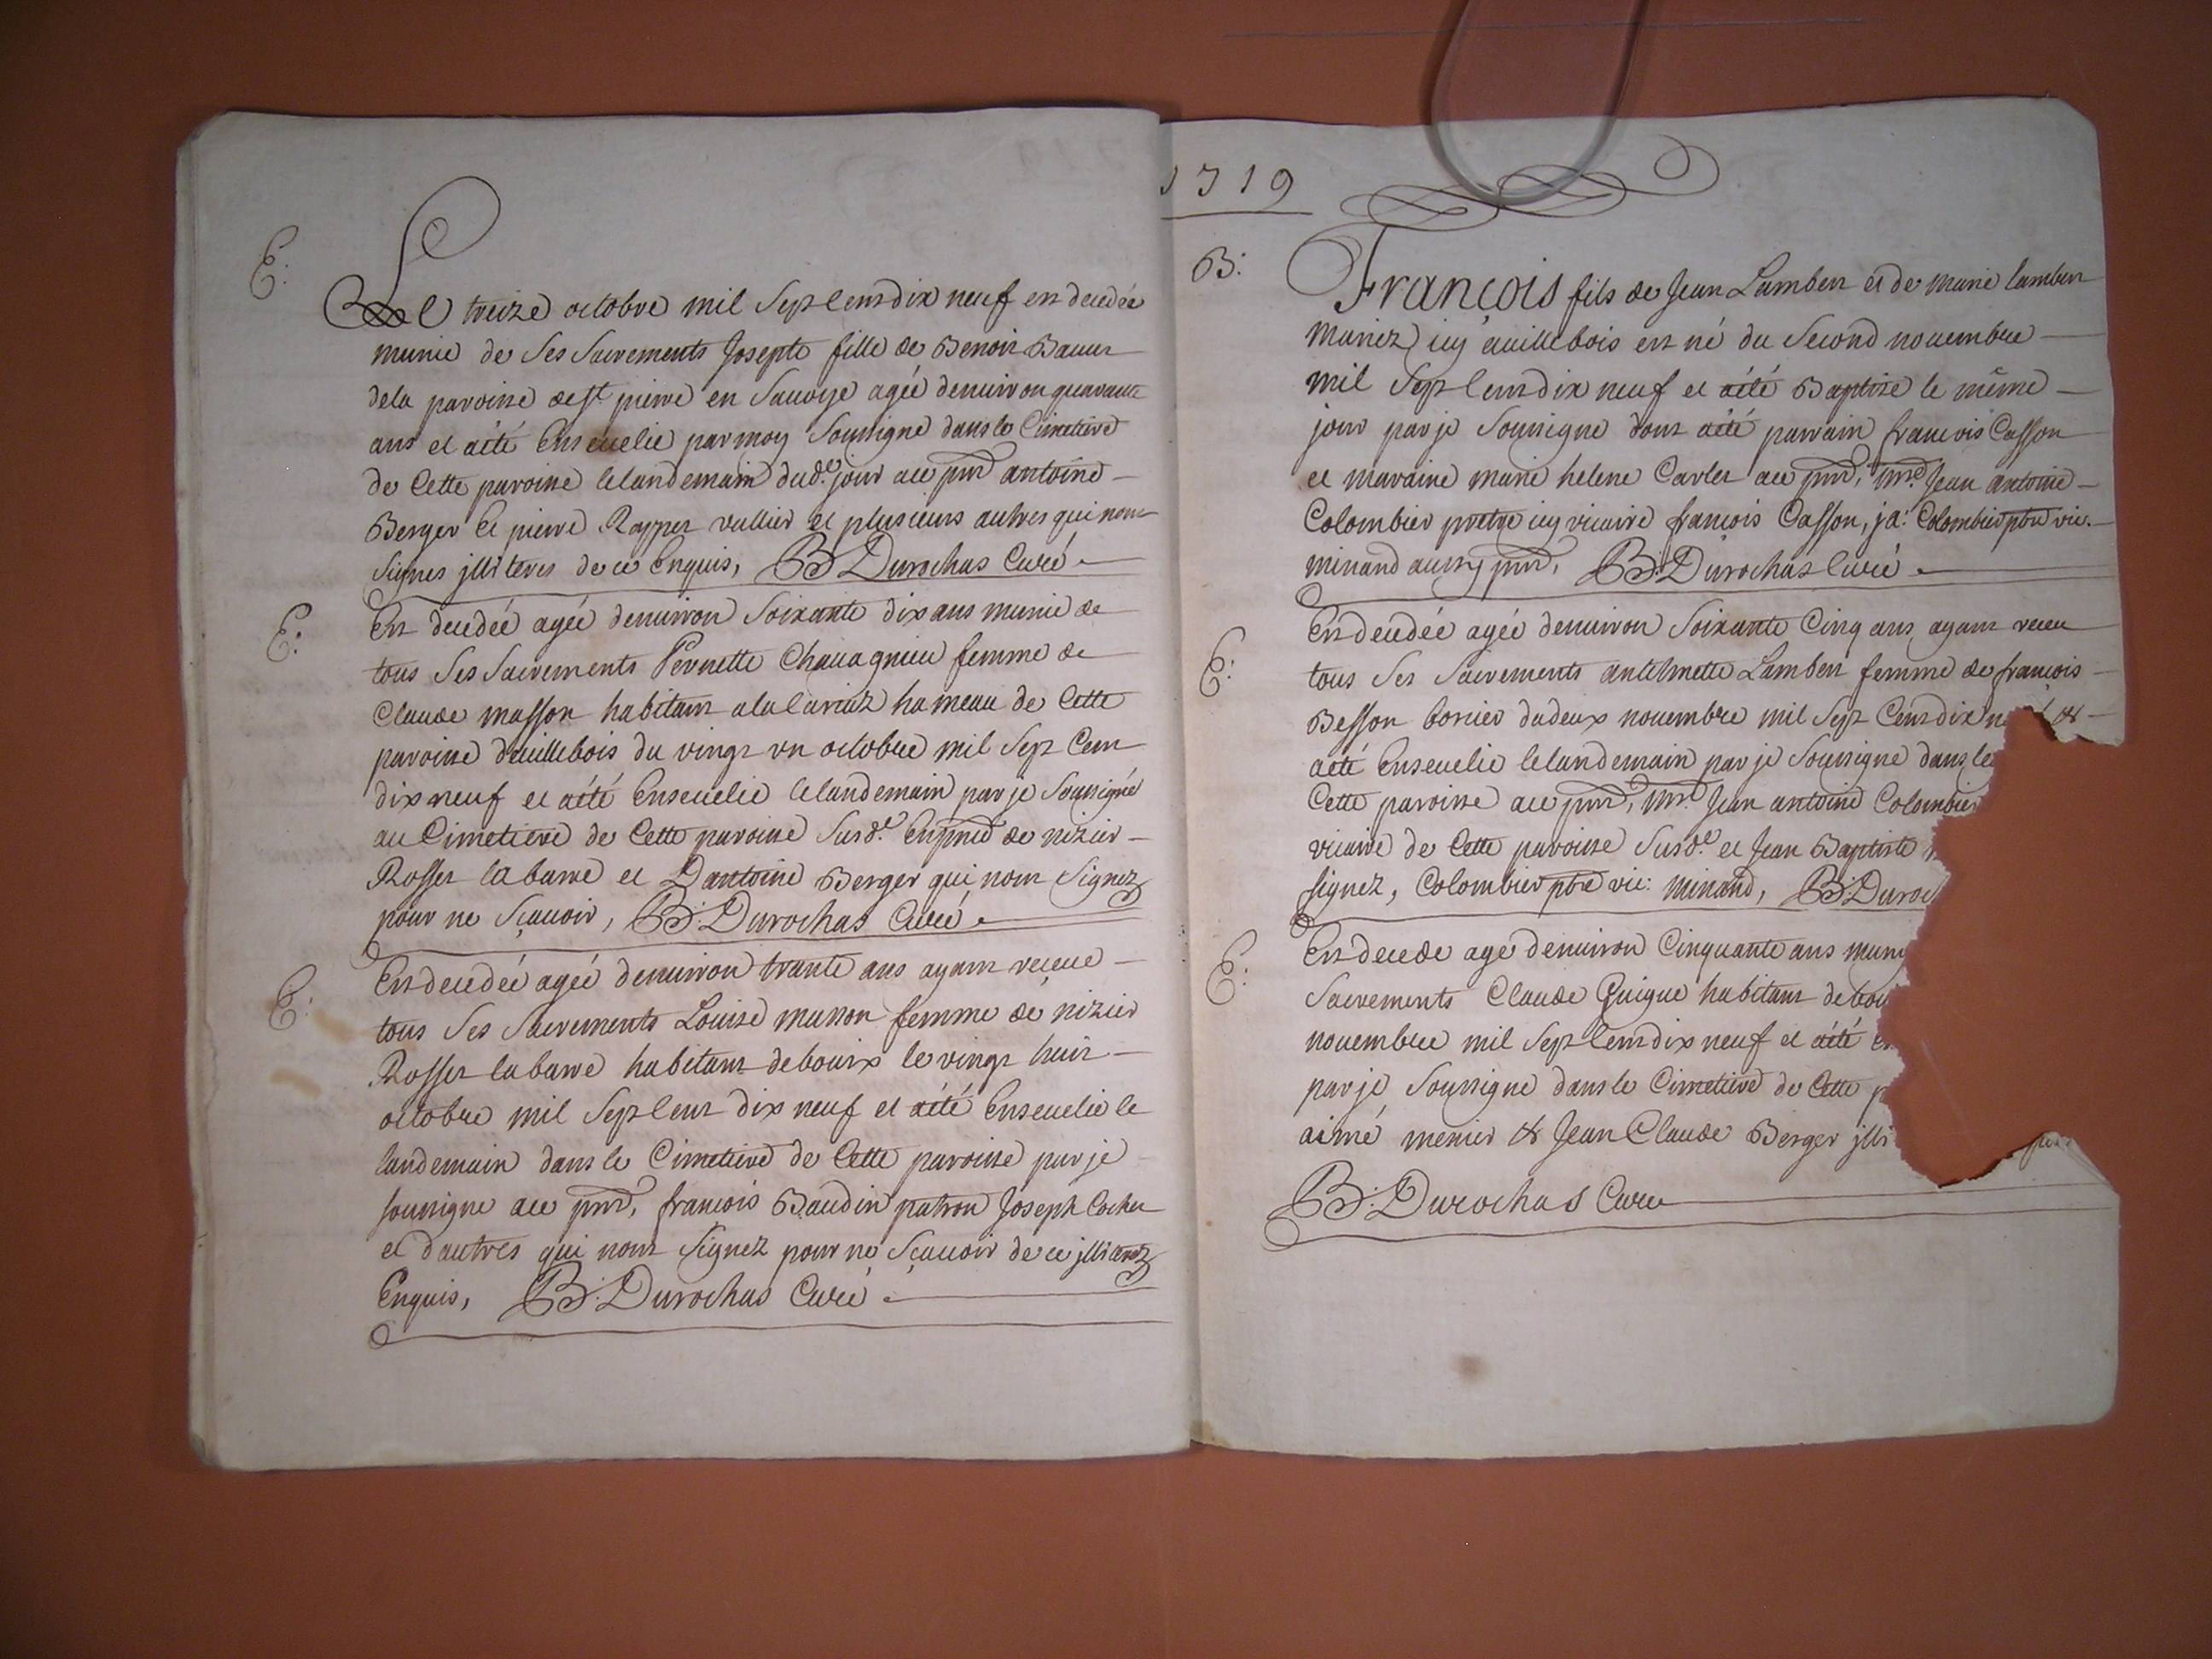 E.
Le treize octobre mil Sept Cent dix neuf est decedée
munie de Ses Sacrements Josepte fille de Benoit
dela paroisse de st. pierre en Sauoye agée denuiron quarante
ans et aété Enseuelie par moy Soussigne dans le Cimetiere
de Cette paroisse lelandemain dud.t jour au pnt antoine
Berger et pierre vullier et plusieurs autres qui nont
Signes jlliteres de ce Enquis, B. Durochas Curé
E.
Est decedée agée denuiron Soixante dix ans munie de
tous Ses Sacrements Pernette Chauagnieu femme de
Claude masson habitant hameau de Cette
paroisse deuillebois du vingt vn octobre mil Sept Cent
dix neuf et aété Enseuelie lelandemain par je Soussigné
au Cimetiere de Cette paroisse Susd.e Enpnce de nizier
Rosset labarre et Dantoine Berger qui nont Signez
pour ne Sçauoir, B. Durochas Curé
E.
Est decedée agée denuiron trante ans ayant receue
tous Ses Sacrements Louise masson femme de nizier
Rosset labarre habitant debouix le vingt huit
octobre mil Sept Cent dix neuf et aété Enseuelie le
landemain dans le Cimetiere de Cette paroisse par je
soussigne au pnt, francois Baudin patron Joseph Cochet
et dautres qui nont Signez pour ne Sçauoir de ce
Enquis, B. Durochas Curé
1719
B.
François fils de Jean Lambert et de marie lambert
mariez icy auillebois est né du Second nouembre
mil Sept Cent dix neuf et aété Baptise le même
jour par je Soussigne dont aété parrain francois Casson
et maraine marie helene Carlet au pnt, mre Jean antoine
Colombier pretre icy vicaire francois Casson, ja: Colombier pbre vic.
minand aussy pnt, B. Durochas Curé
E.
Est decedée agée denuiron Soixante Cinq ans ayant receu
tous Ses Sacrements antelmette Lambert femme de francois
Besson du deux nouembre mil Sept Cent dix &
aété Enseuelie lelandemain par je Soussigne dans le
Cette paroisse au pnt, mre Jean antoine Colombier
vicaire de Cette paroisse Susd.e et Jean Baptiste
signez, Colombier pbre vic: minand, B. Duroc
E.
Est decede agé denuiron Cinquante ans muny
Sacrements Claude Guigue habitant de boui
nouembre mil Sept Cent dix neuf et aété
par je Soussigne dans le Cimetiere de Cette p
aimé menier & Jean Claude Berger jlli
B. Durochas Cure